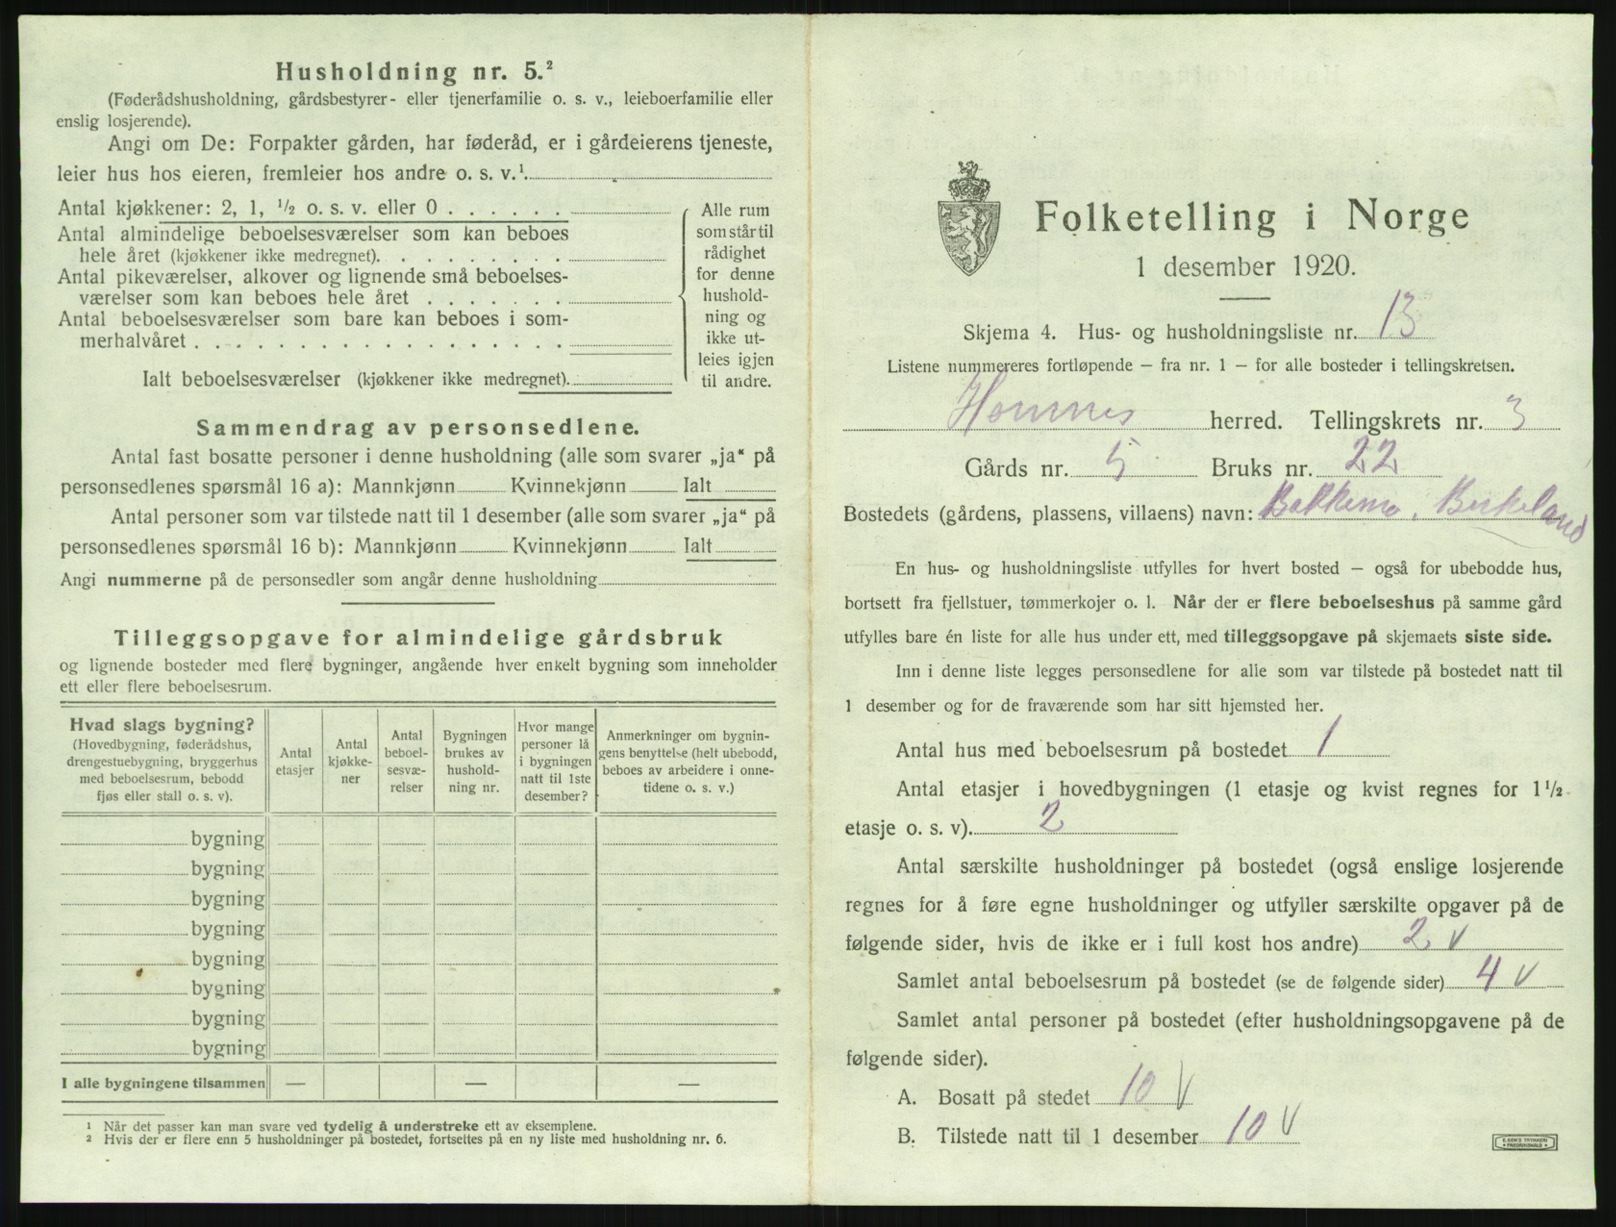 Husholdning nr. 5.²
(Føderådshusholdning, gårdsbestyrer- eller tjenerfamilie o. s. v., leieboerfamilie eller
enslig losjerende).
Angi om De: Forpakter gården, har føderåd, er i gårdeierens tjeneste,
leier hus hos eieren, fremleier hos andre o. s. v.¹
Antal kjøkkener: 2, 1, ½ o. s. v. eller 0 . . . . . .
Antal almindelige beboelsesværelser som kan beboes
hele året (kjøkkener ikke medregnet). . . . . . . . .
Antal pikeværelser, alkover og lignende små beboelses-
værelser som kan beboes hele året . . . . . . .
Antal beboelsesværelser som bare kan beboes i som-
merhalvåret . . . . . . . . . . . . . . . . .
Ialt beboelsesværelser (kjøkkener ikke medregnet).
Alle rum
som står til
rådighet
for denne
hushold-
ning og
ikke ut-
leies igjen
til andre.
Sammendrag av personsedlene.
Antal fast bosatte personer i denne husholdning (alle som svarer „ja“ på
personsedlenes spørsmål 16 a): Mannkjønn Kvinnekjønn Ialt
Antal personer som var tilstede natt til 1 desember (alle som svarer „ja“ på
personsedlenes spørsmål 16 b): Mannkjønn Kvinnekjønn Ialt
Angi nummerne på de personsedler som angår denne husholdning
Tilleggsopgave for almindelige gårdsbruk
og lignende bosteder med flere bygninger, angående hver enkelt bygning som inneholder
ett eller flere beboelsesrum.
Hvad slags bygning?
(Hovedbygning, føderådshus,
drengestuebygning, bryggerhus
med beboelsesrum, bebodd
fjøs eller stall o. s. v).
Antal
etasjer
Antal
kjøkke-
ner
Antal
beboel-
sesvæ-
relser
Bygningen
brukes av
hushold-
ning nr.
Hvor mange
personer lå
i bygningen
natt til 1ste
desember?
Anmerkninger om bygnin-
gens benyttelse (helt ubebodd,
beboes av arbeidere i onne-
tidene o. s. v.)
bygning
bygning
bygning
bygning
bygning
bygning
bygning
bygning
I alle bygningene tilsammen — — —
¹ Når det passer kan man svare ved tydelig å understreke ett av eksemplene.
² Hvis der er flere enn 5 husholdninger på bostedet, fortsettes på en ny liste med husholdning nr. 6.
Folketelling i Norge
1 desember 1920.
Skjema 4. Hus- og husholdningsliste nr. 13
Listene nummereres fortløpende — fra nr. 1 — for alle bosteder i tellingskretsen.
Homnes herred. Tellingskrets nr. 3
Gårds nr. 5 Bruks nr. 22
Bostedets (gårdens, plassens, villaens) navn: Bakkemo, Birkeland
En hus- og husholdningsliste utfylles for hvert bosted — også for ubebodde hus,
bortsett fra fjellstuer, tømmerkojer o. l. Når der er flere beboelseshus på samme gård
utfylles bare én liste for alle hus under ett, med tilleggsopgave på skjemaets siste side.
Inn i denne liste legges personsedlene for alle som var tilstede på bostedet natt til
1 desember og for de fraværende som har sitt hjemsted her.
Antal hus med beboelsesrum på bostedet 1
Antal etasjer i hovedbygningen (1 etasje og kvist regnes for 1½
etasje o. s. v). 2
Antal særskilte husholdninger på bostedet (også enslige losjerende
regnes for å føre egne husholdninger og utfyller særskilte opgaver på de
følgende sider, hvis de ikke er i full kost hos andre) 2 v
Samlet antal beboelsesrum på bostedet (se de følgende sider) 4 v
Samlet antal personer på bostedet (efter husholdningsopgavene på de
følgende sider).
A. Bosatt på stedet 10 v
B. Tilstede natt til 1 desember 10 v